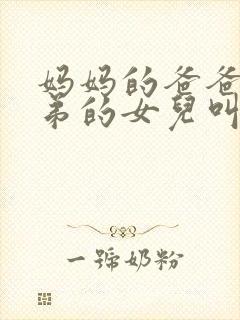 妈妈的爸爸
弟的女兒叫
一號奶粉